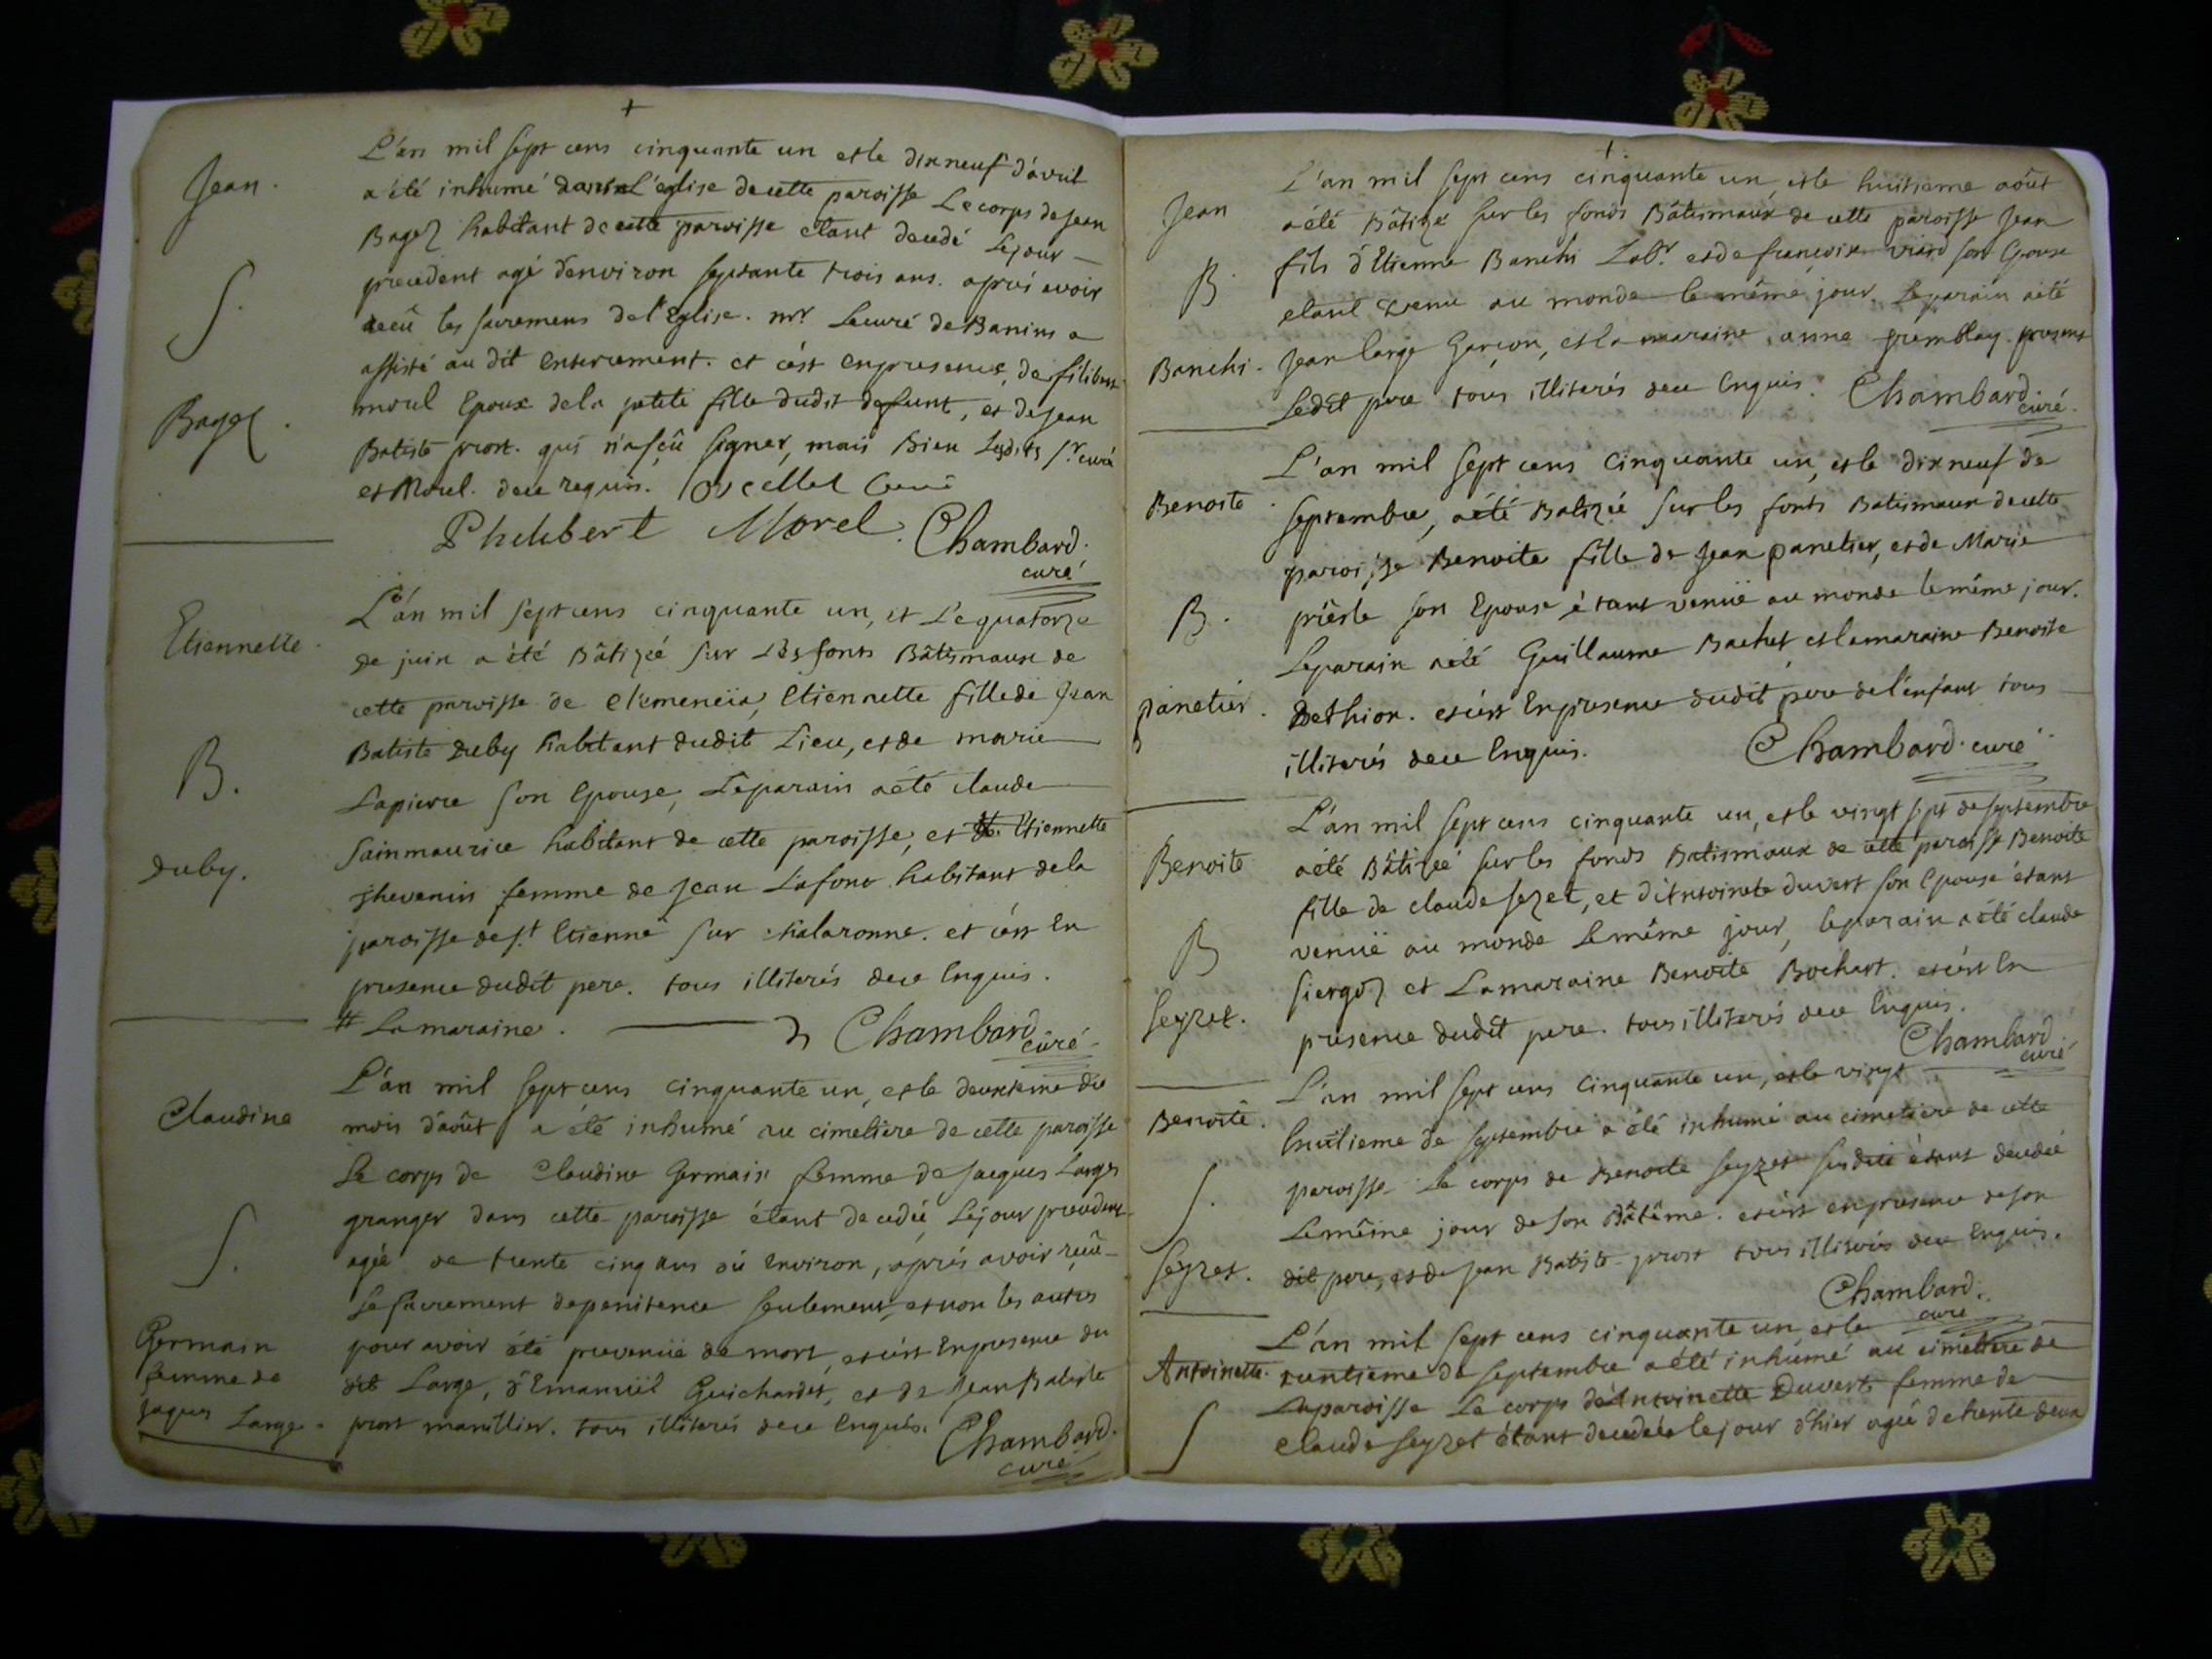 Jean.
S.
Bagez.
L'an mil sept cens cinquante un et le dix neuf d'avril
a été inhumé dans L'eglise de cette paroisse Le corps de Jean
Bagez habitant de cette paroisse etant decedé Le jour
precedent agé d'environ septante trois ans. aprés avoir
receû les sacremens de l'Eglise. mr. Le curé de Banins a
assisté au dit enterrement. et c'est en presence, de filibert
morel Epoux de la petite fille dudit defunt, et de Jean
Batiste prost. qui n'a sçû signer, mais bien Lesdits sr. curé
et Morel. de ce requis. curé
Philibert Morel. Chambard.
curé
Etiennette.
B.
duby.
L'an mil sept cens cinquante un, et Le quatorze
de juin a été Bâtizée sur Les fonts Bâtismaux de
cette paroisse de clemencia, Etiennette fille de Jean
Batiste Duby habitant dudit Lieu, et de marie
Lapierre son Epouse, Le parain a été claude
Sainmaurice habitant de cette paroisse, et # Etiennette
thevenin femme de Jean Lafond habitant de la
paroisse de st. Etienne sur chalaronne. et c'est En
presence dudit pere. tous illiterés de ce Enquis.
# La maraine. Chambard
curé
Claudine
S.
Germain
femme de
jaques Large.
L'an mil sept cens cinquante un, et le deuxieme du
mois d'août a été inhumé au cimetiere de cette paroisse
Le corps de Claudine Germain femme de Jacques Large
granger dans cette paroisse étant decedée Le jour precedent
agée de trente cinq ans où Environ, aprés avoir reçû
Le sacrement de penitence seulement, et non les autres
pour avoir été prevenüe de mort, et c'est En presence du
dit Large, d'Emanuel Guichardet, et de Jean Batiste
prost marillier. tous illiterés de ce Enquis. Chambard.
curé
Jean
B.
Banchi.
L'an mil sept cens cinquante un, et le huitieme août
a été Bâtizé sur les fonds Bâtismaux de cette paroisse Jean
fils d'Etienne Banchi Labr. et de françoise viard son Epouse
etant venu au monde le même jour. Le parain a été
Jean large Garçon, et la maraine anne tremblay. present
Ledit pere tous illiterés de ce Enquis. Chambard
curé.
Benoite
B.
panetier.
L'an mil sept cens Cinquante un, et le dix neuf de
septembre, a été Batizée sur les fonts Batismaux de cette
paroisse Benoite fille de Jean panetier, et de Marie
son Epouse étant venüe au monde le même jour.
Le parain a été Guillaume Bachet, et la maraine Benoite
Bethion. et c'est En presence dudit pere de l'enfant tous
illiterés de ce Enquis. Chambard. curé
Benoite
B
Seyzet.
L'an mil sept cens cinquante un, et le vingt sept de septembre
a été Bâtizée sur les fonds Batismaux de cette paroisse Benoite
fille de claude sezet, et d'Antoinete duvert son Epouse étant
venüe au monde Le même jour, le parain a été claude
siergoz et La maraine Benoite Bochart. et c'est En
presence dudit pere. tous illiterés de ce Enquis.
Chambard
curé
Benoite.
S.
Seyzet.
L'an mil sept cens Cinquante un, et le vingt
huitieme de septembre a été inhumé au cimetiere de cette
paroisse Le corps de Benoite seyzet susdite étant decedée
Le même jour de son Bâtême. et c'est en presence de son
dit pere, et de Jean Batiste prost tous illiterés de ce Enquis.
Chambard.
curé
Antoinette.
S
L'an mil sept cens cinquante un et le
trentieme de septembre a été inhumé au cimetiere de
la paroisse Le corps d'Antoinette Duvert femme de
claude seyzet étant decedée le jour d'hier agée de trente deux